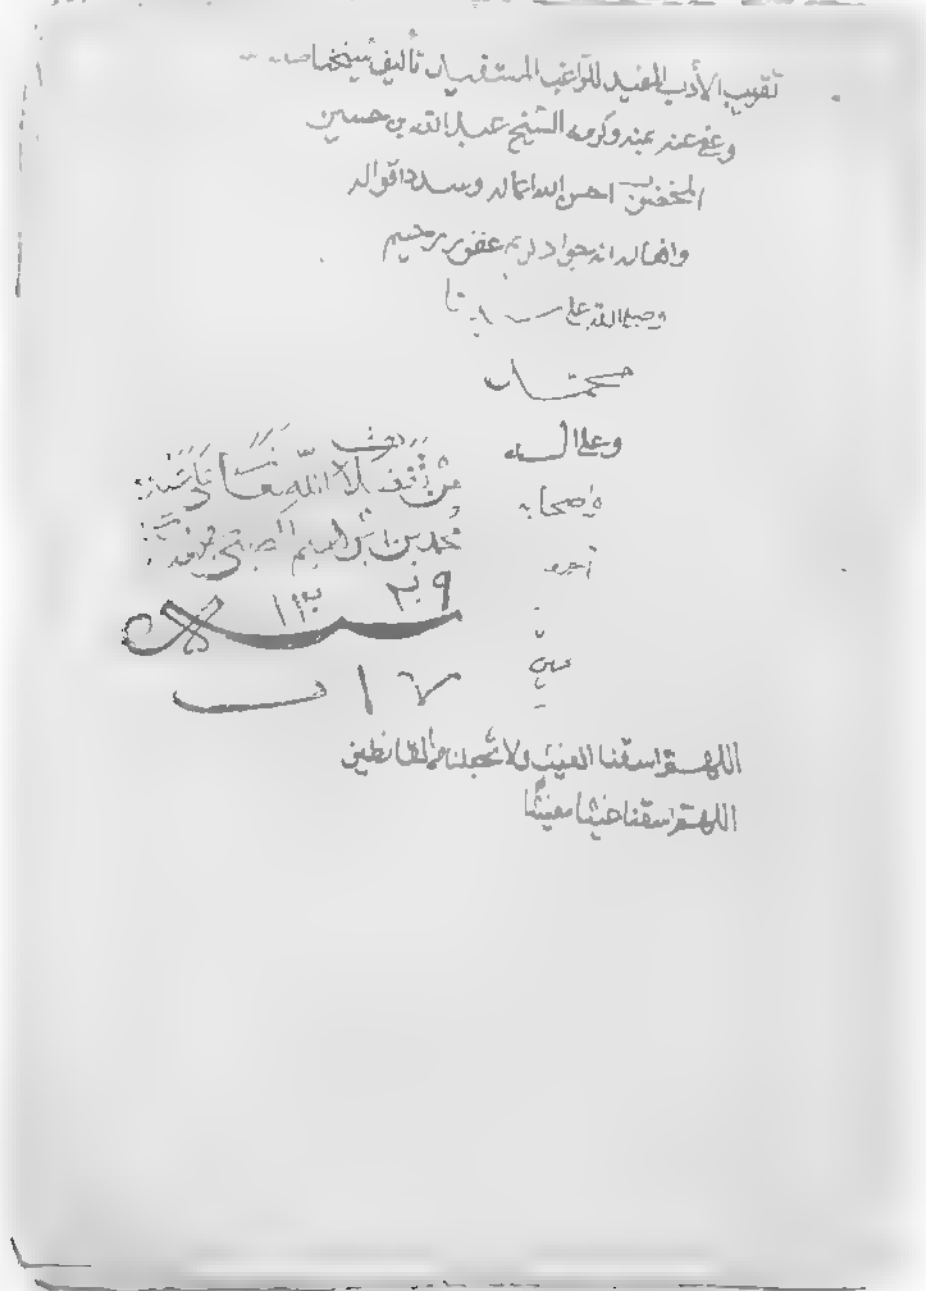 تقريب الأدب المفيد للراغب المستفيد تأليف شيخنا
وعفى عنه بمنه وكرمه الشيخ عبدالله بن حسين
المخضوب احسن الله اعماله وسدد اقواله
وافعاله انه جواد كريم غفور رحيم
وصلى الله على سيدنا
محمد
وعلى اله
واصحابه
اجمعين
من
الله تعالى
محمد بن ابراهيم
١٣ ٢٩
١٧
اللهم اسقنا الغيث ولا تجعلنا من القانطين
اللهم اسقنا غيثا مغيثا